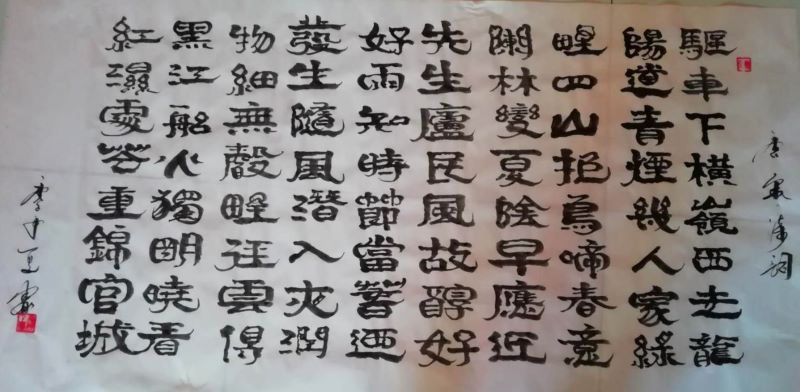 驅車下橫嶺西走龍
陽道青煙幾人家綠
野四山抱鳥啼春意
闌林變夏陰早應近
先生廬民風故醇好
好雨知時節當萅迺
發生隨風潛入夜潤
物細無聲野徑雲俱
黑江船火獨明曉看
紅濕處花重錦官城